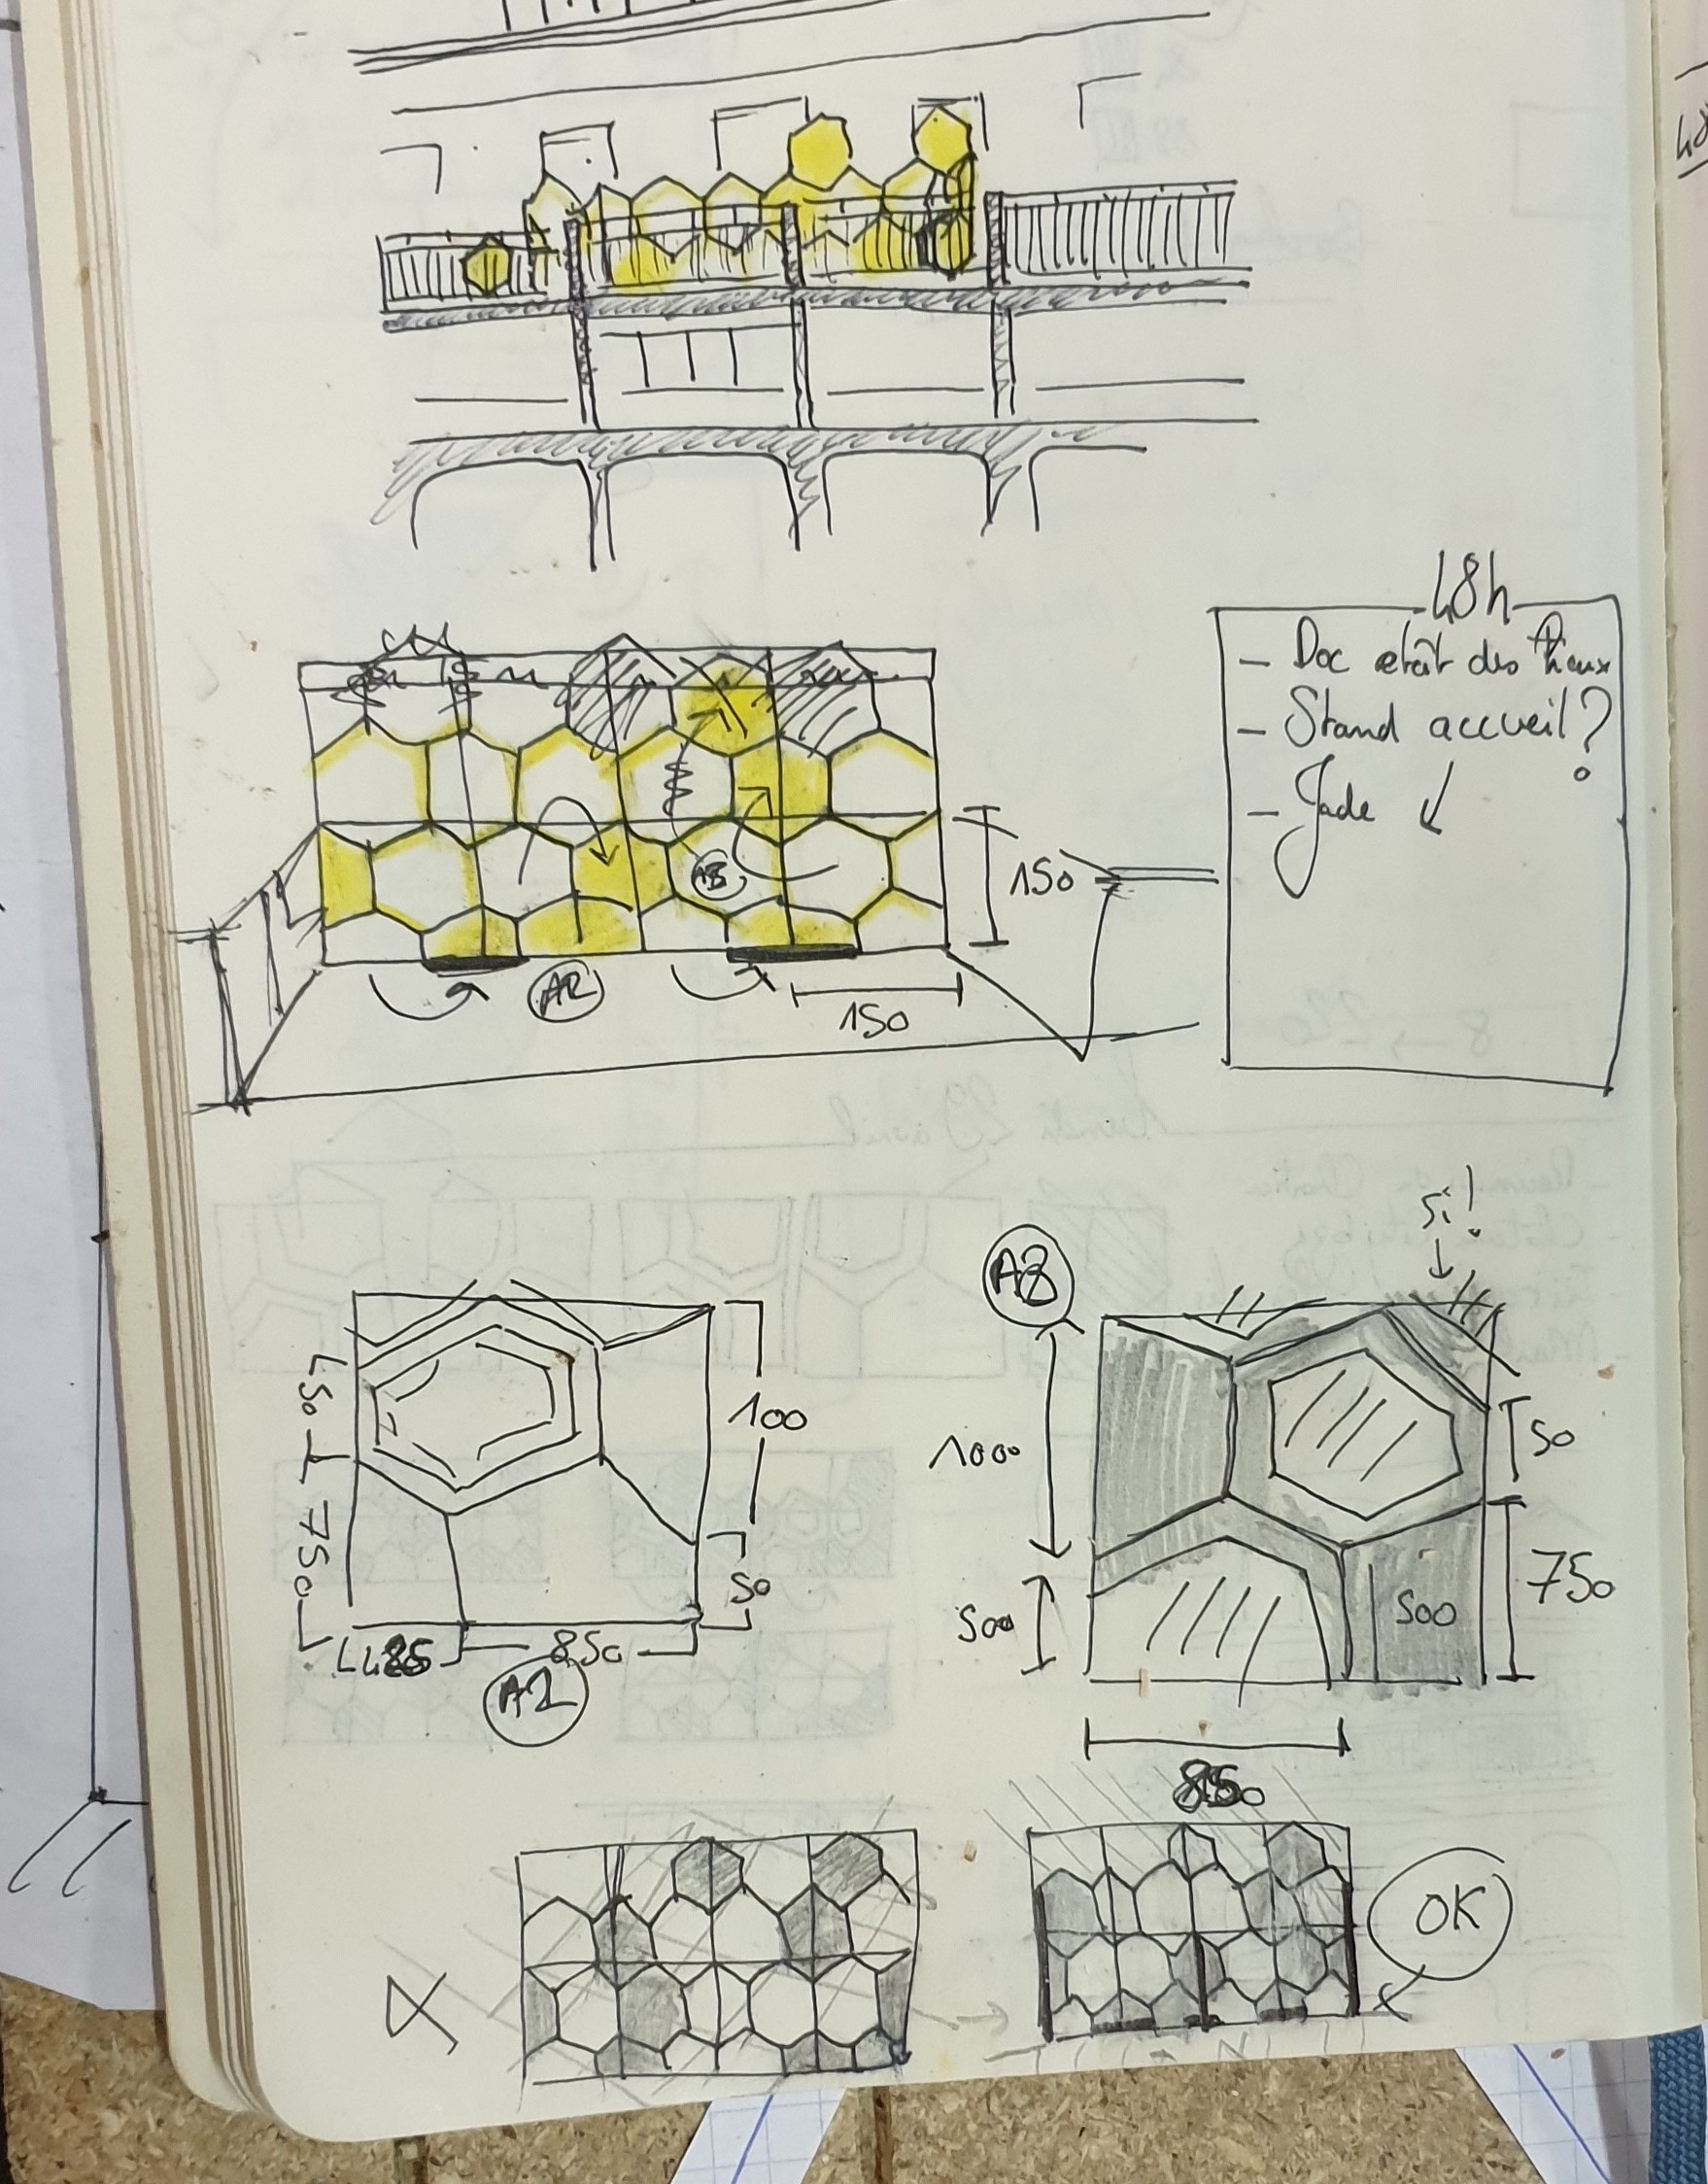 48h
- Doc état des lieux
- Stand accueil?
- Jade
A3
150
A2
150
Si!
A3
50
750
100
50
850
A2
1000
500
50
750
500
850
OK